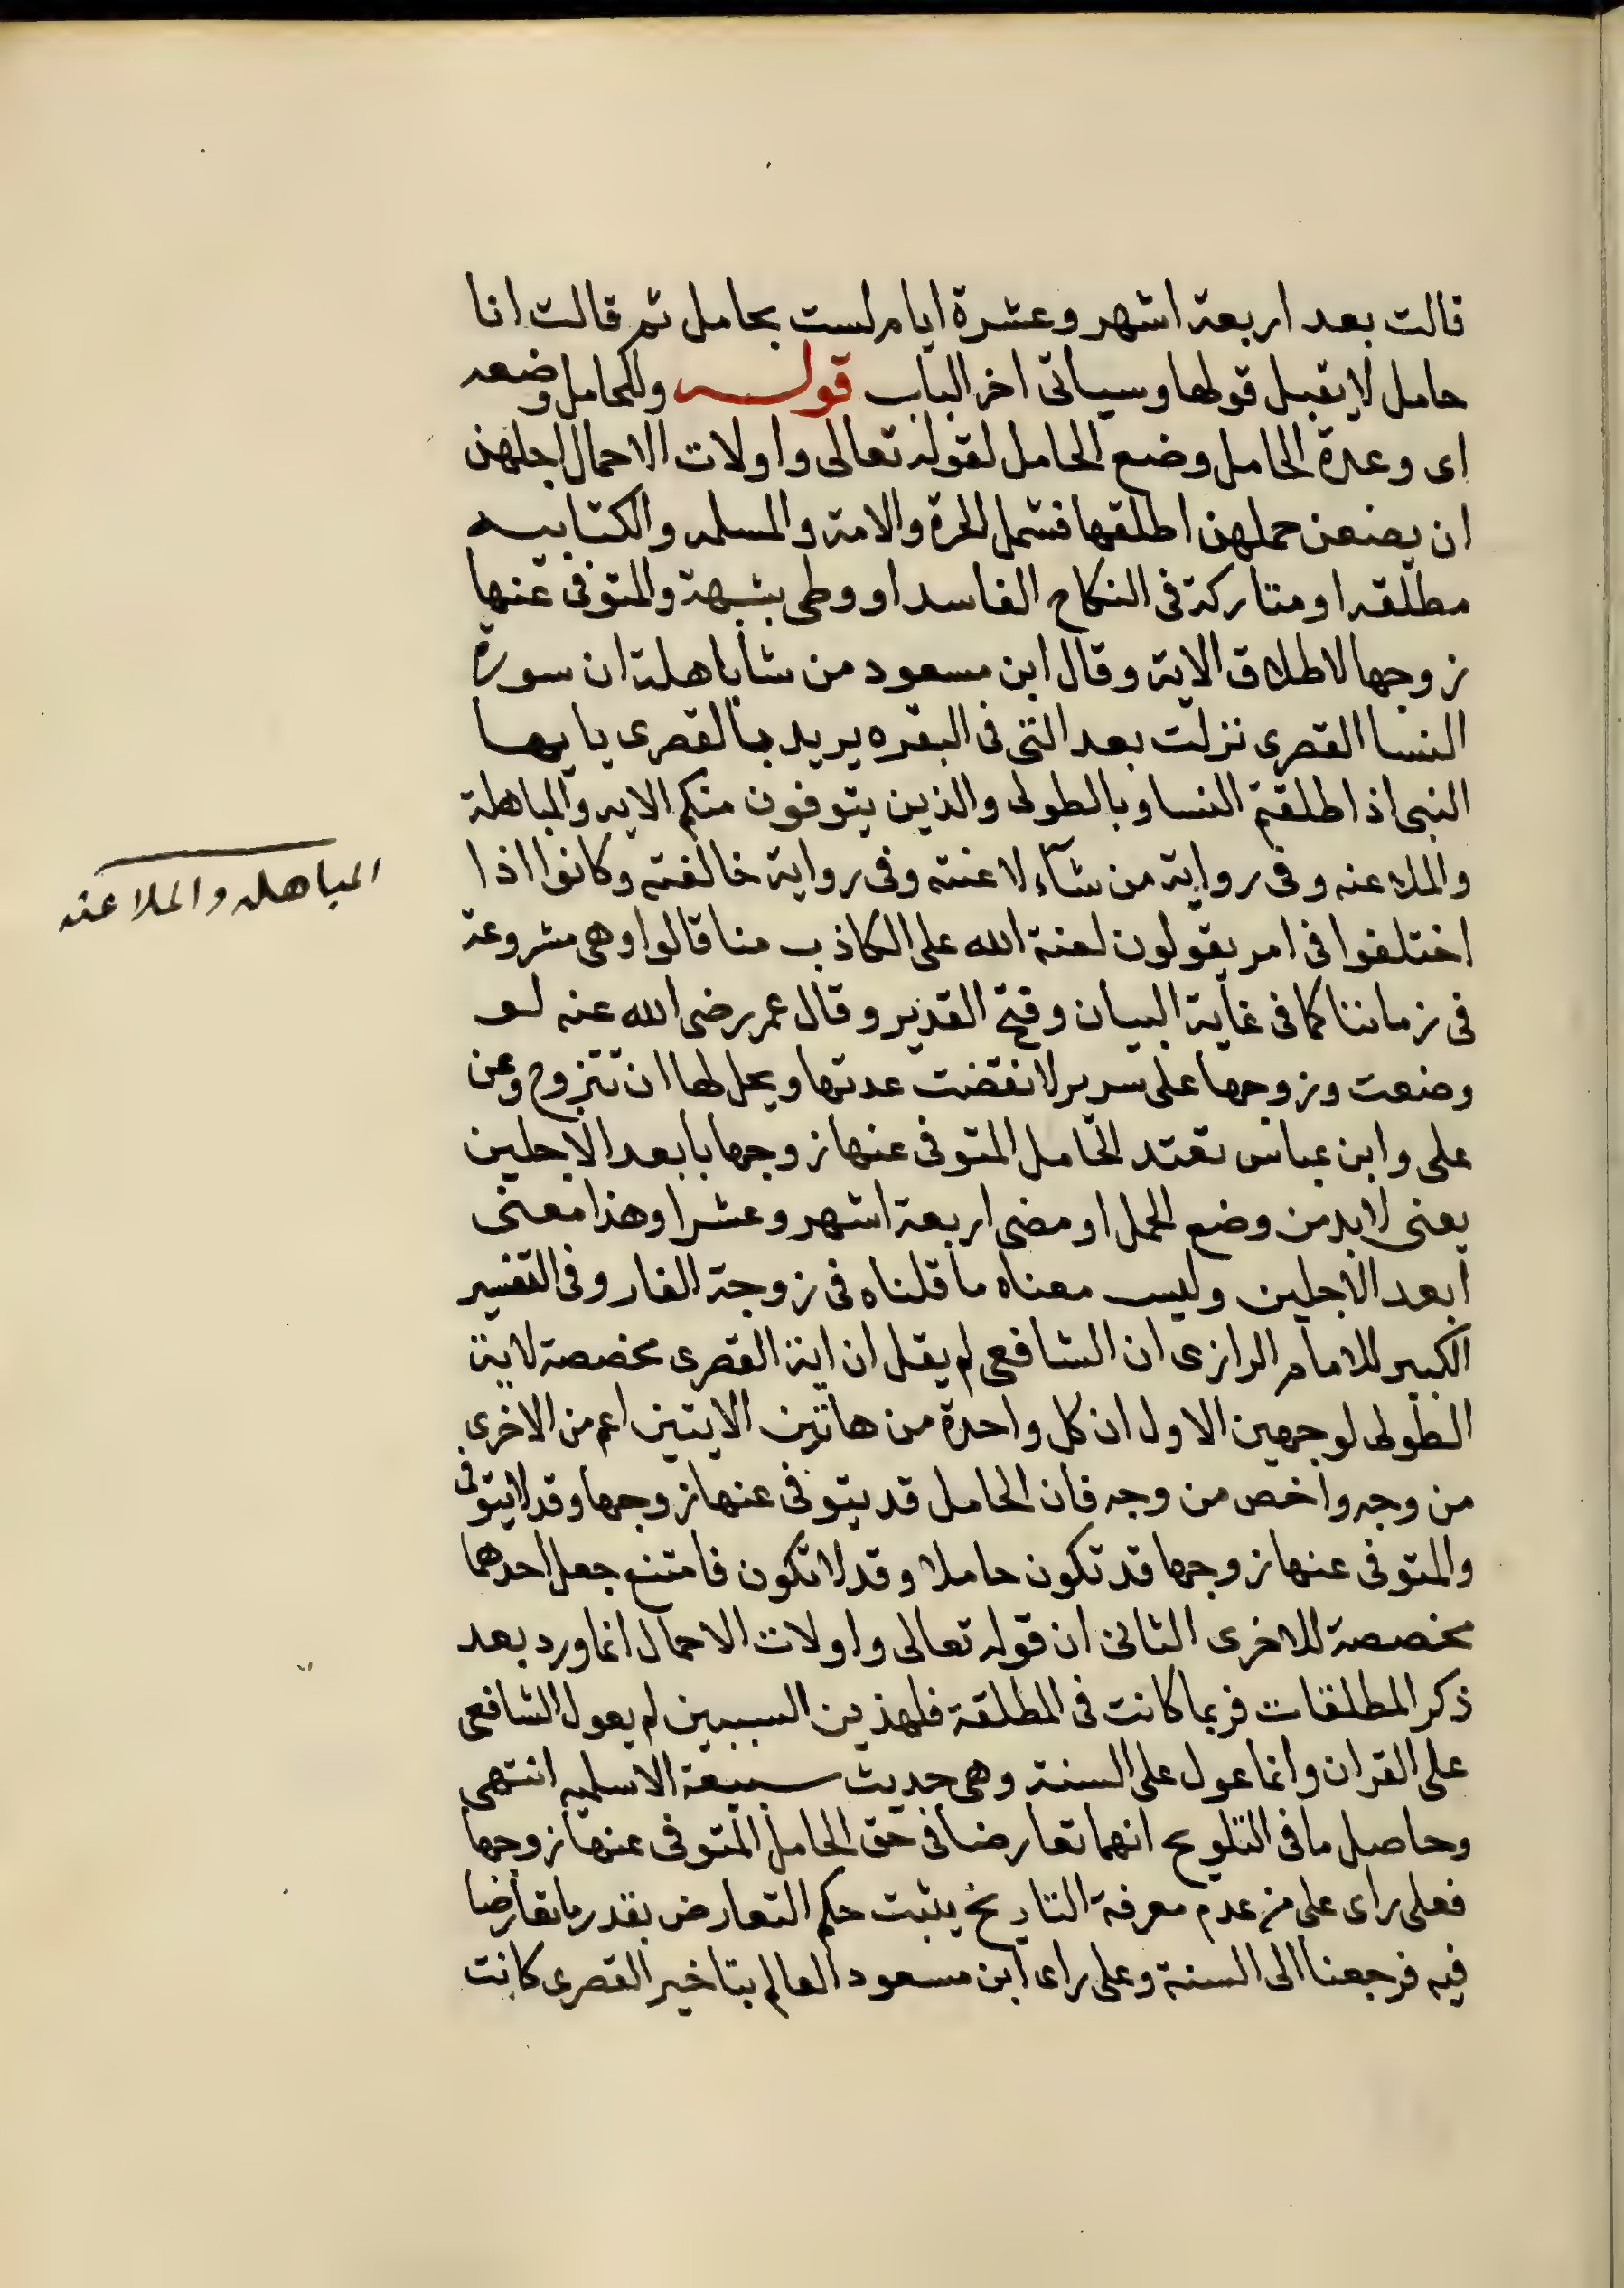 قالت بعد اربعة اشهر وعشرة ايام لست بحامل ثم قالت انا
حامل لا يقبل قولها وسياتى اخر الباب قوله وللحامل وضعه
اى وعدة الحامل وضع الحامل لقوله تعالى واولات الاحمال اجلهن
ان يضعن حملهن اطلقها فشمل الحرة والامة والمسلمه والكتابيه
مطلقه او متاركة فى النكاح الفاسد او وطى بشبهة والمتوفى عنها
زوجها لاطلاق الاية وقال ابن مسعود من شا باهلته ان سورة
النسا القصرى نزلت بعد التى فى البقره يريد بالقصرى يايها
النبى اذا طلقتم النسا وبالطولى والذين يتوفون منكم الايه والمباهلة
والملاعنه وفى رواية من شآء لاعنته وفى رواية خالفته وكانوا اذا
اختلفوا فى امر يقولون لعنة الله على الكاذب منا قالوا وهى مشروعة
فى زماننا كما فى غاية البيان وفتح القدير وقال عمر رضى الله عنه لو
وضعت وزوجها على سرير لانقضت عدتها ويحل لها ان تتزوج وعن
على وابن عباس تعتد الحامل المتوفى عنها زوجها بابعد الاجلين
يعنى لا بد من وضع الحمل او مضى اربعة اشهر وعشرا وهذا معنى
ابعد الاجلين وليس معناه ما قلناه فى زوجة الفار وفى التفسير
الكبير للامام الرازى ان الشافعى لم يقل ان اية القصرى مخصصة لاية
الطولى لوجهين الاول ان كل واحدة من هاتين الايتين اعم من الاخرى
من وجه واخص من وجه فان الحامل قد يتوفى عنها زوجها وقد لا يتوفى
والمتوفى عنها زوجها قد تكون حاملا وقد لا تكون فامتنع جعل احدهما
مخصصة للاخرى الثانى ان قوله تعالى واولات الاحمال انما ورد بعد
ذكر المطلقات فربما كانت فى المطلقة فلهذين السببين لم يعول الشافعى
على القران وانما عول على السنة وهى حديث سبيعة الاسلميه انتهى
وحاصل ما فى التلويح انهما تعارضا فى حق الحامل المتوفى عنها زوجها
فعلى راى على من عدم معرفة التاريخ يثبت حكم التعارض بقدر ما تعارضا
فيه فرجعنا الى السنة وعلى راى ابن مسعود العالم بتاخير القصرى كانت
المباهله والملاعنه